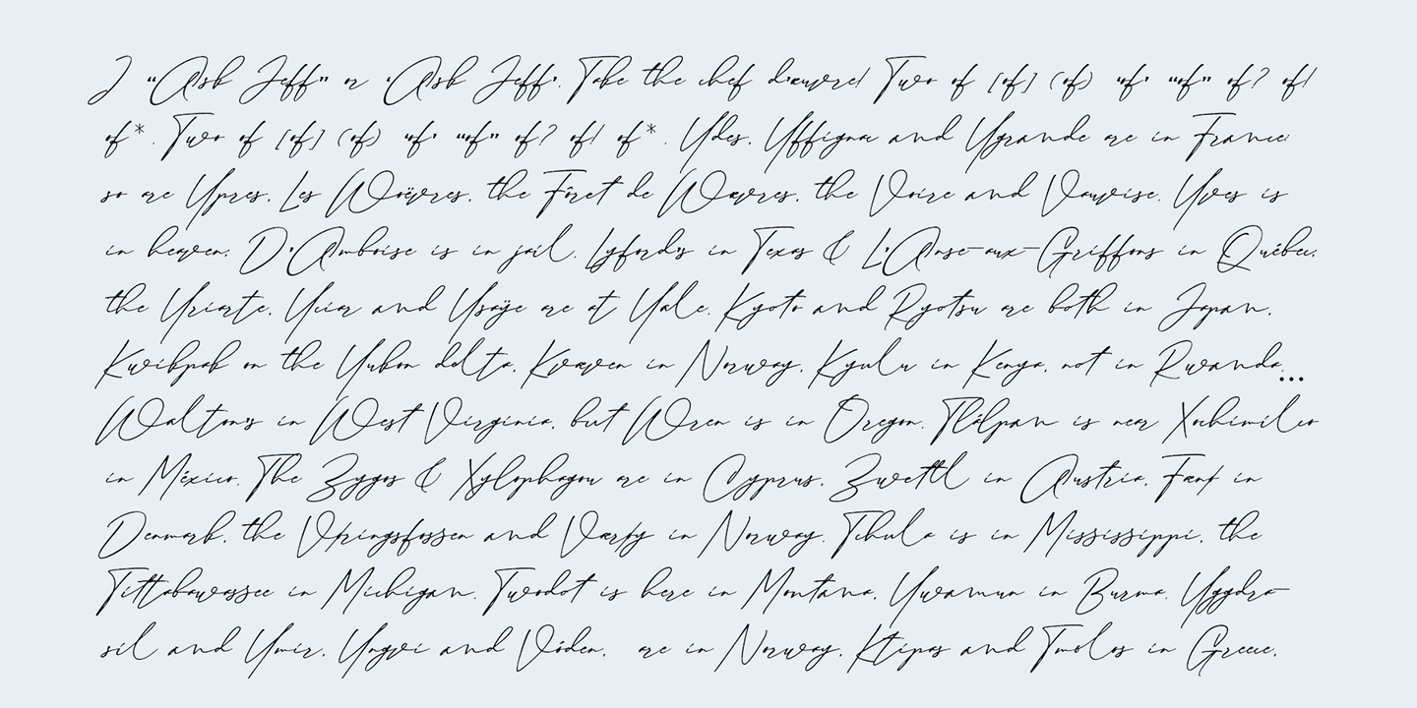 I “Ask Jeff” or ‘Ask Jeff’. Take the chef d’œuvre! Two of [of] (of) ‘of’ “of” of? of!
of*. Two of [of] (of) ‘of’ “of” of? of! of*. Ydes, Yffignac and Ygrande are in France:
so are Ypres, Les Woëvres, the Fôret de Wœvres, the Voire and Vauvise. Yves is
in heaven, D’Amboise is in jail. Lyford’s in Texas & L’Anse-aux-Griffons in Québec,
the Yriarte, Yciar and Ysaÿe are at Yale. Kyoto and Ryotsu are both in Japan,
Kwikpak on the Yukon delta, Kvæven in Norway, Kyulu in Kenya, not in Rwanda.…
Walton’s in West Virginia, but Wren is in Oregon. Tlálpan is near Xochimilco
in México. The Zygos & Xylophagou are in Cyprus, Zwettl in Austria, Fænø in
Denmark, the Vøringsfossen and Værøy in Norway. Tchula is in Mississippi, the
Tittabawassee in Michigan. Twodot is here in Montana, Ywamun in Burma. Yggdra-
sil and Ymir, Yngvi and Vóden, are in Norway, Ktipas and Tmolos in Greece,